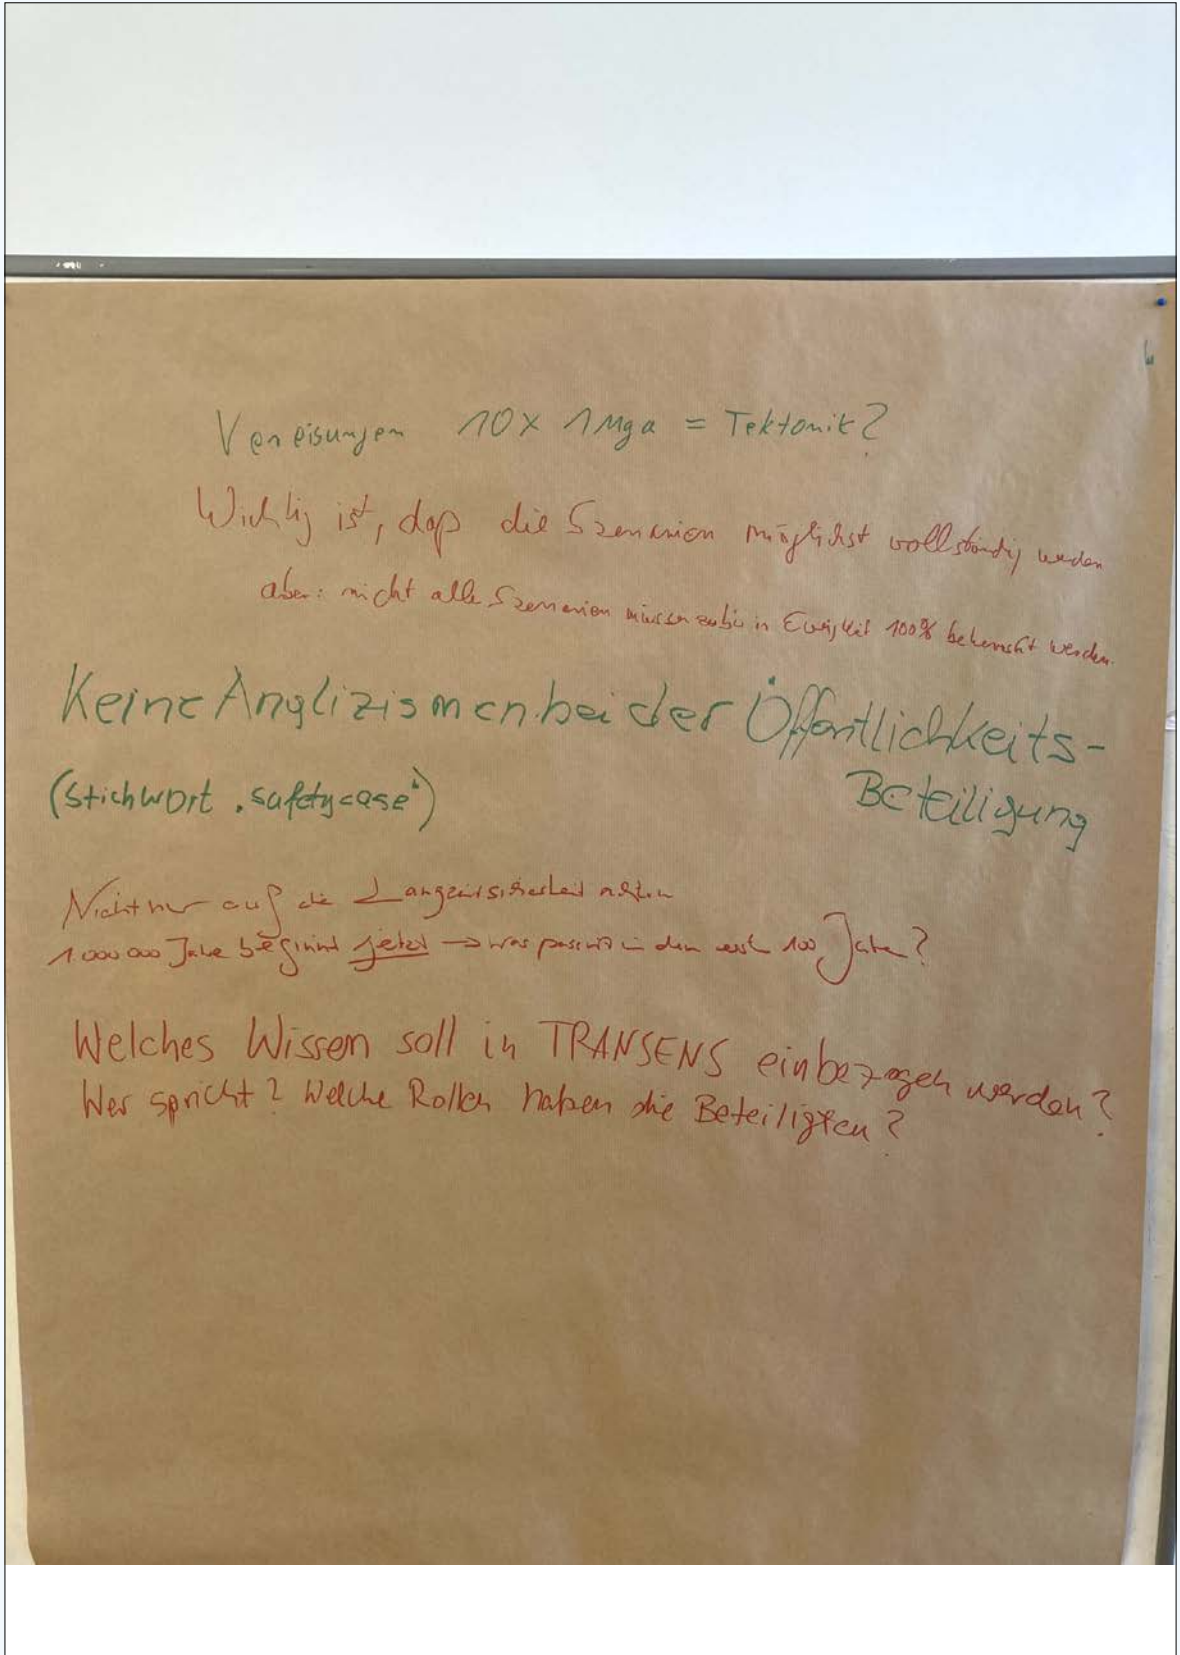 Vereisungen 10x 1Mga = Tektonik?
Wichtig ist, daß die Szenarien möglichst vollständig werden
aber: nicht alle Szenarien müssen in Ewigkeit 100% beherrscht werden.
Keine Anglizismen bei der Öffentlichkeits-
(Stichwort "safetycase") Beteiligung
Nicht nur auf die Langzeitsicherheit achten
1.000 000 Jahre beginnt jetzt → was passiert in den erst 100 Jahre?
Welches Wissen soll in TRANSENS einbezogen werden?
Wer spricht? Welche Rollen haben die Beteiligten?